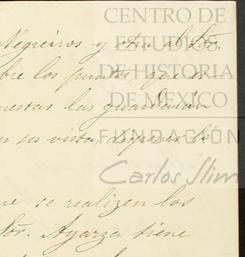 CENTRO DE
ESTUDIOS
DE HISTORIA
DE MÉXICO
FUNDACIÓN
Carlos Slim
Negreiros y otra al Sr.
bre los puntos que
puestas las guardarán
en su vista,
que se realizen los
Sr. Ayarza tiene